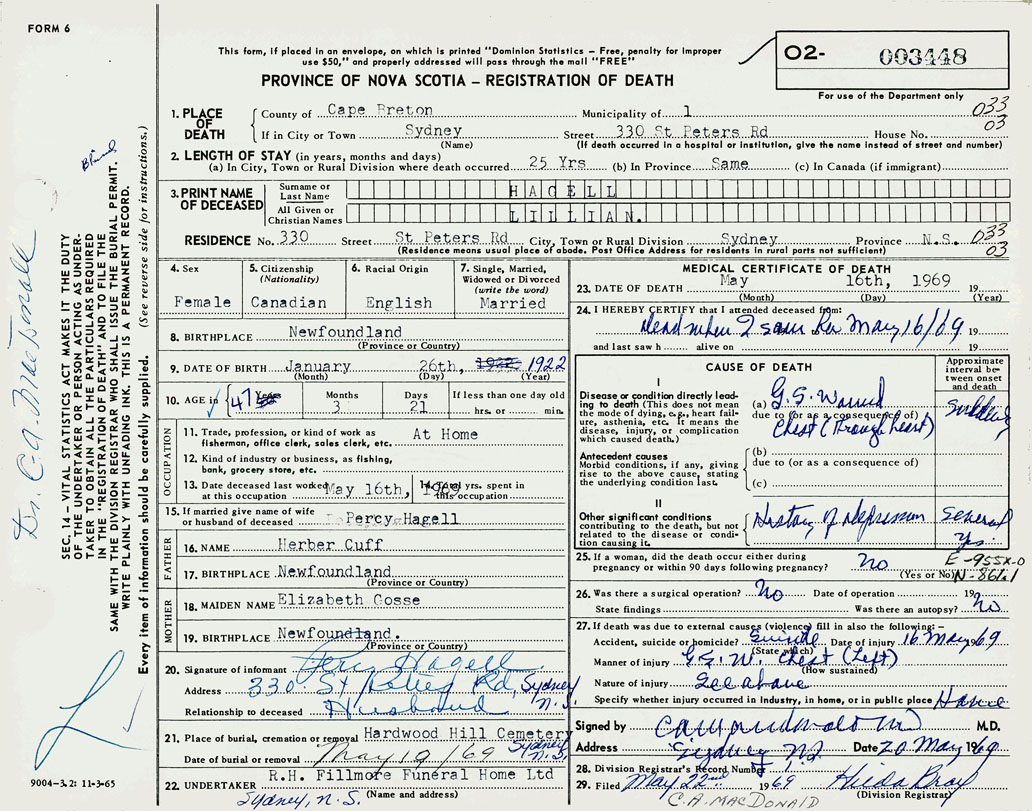 FORM 6
This form, if placed in an envelope, on which is printed "Dominion Statistics – Free, penalty for improper
use $50," and properly addressed will pass through the mail "FREE"
PROVINCE OF NOVA SCOTIA – REGISTRATION OF DEATH
02- 003448
For use of the Department only
1. PLACE OF DEATH
County of Cape Breton Municipality of 1 033
03
If in City or Town Sydney Street 330 St Peters Rd House No.
(Name) (If death occurred in a hospital or institution, give the name instead of street and number)
2. LENGTH OF STAY (in years, months and days)
(a) In City, Town or Rural Division where death occurred 25 Yrs (b) In Province Same (c) In Canada (if immigrant)
3. PRINT NAME OF DECEASED
Surname or Last Name HAGELL
All Given or Christian Names LILLIAN.
RESIDENCE No. 330 Street St Peters Rd City, Town or Rural Division Sydney Province N.S. 033
03
(Residence means usual place of abode. Post Office Address for residents in rural parts not sufficient)
4. Sex
Female
5. Citizenship
(Nationality)
Canadian
6. Racial Origin
English
7. Single, Married,
Widowed or Divorced
(write the word)
Married
8. BIRTHPLACE Newfoundland
(Province or County)
9. DATE OF BIRTH January 26th, 1922 1922
(Month) (Day) (Year)
10. AGE in 47 Years Months 3 Days 21 If less than one day old
hrs. or min.
OCCUPATION
11. Trade, profession, or kind of work as
fisherman, office clerk, sales clerk, etc. At Home
12. Kind of industry or business, as fishing,
bank, grocery store, etc.
13. Date deceased last worked
at this occupation May 16th, 1969
14. Total yrs. spent in
this occupation
15. If married give name of wife
or husband of deceased Percy Hagell
FATHER
16. NAME Herber Cuff
17. BIRTHPLACE Newfoundland
(Province or Country)
MOTHER
18. MAIDEN NAME Elizabeth Gosse
19. BIRTHPLACE Newfoundland.
(Province or Country)
20. Signature of informant Percy Hagell
Address 330 St Peters Rd, Sydney N.S.
Relationship to deceased Husband
21. Place of burial, cremation or removal Hardwood Hill Cemetery
Sydney N.S.
Date of burial or removal May 19/69
22. UNDERTAKER R.H. Fillmore Funeral Home Ltd
(Name and address)
Sydney, N.S.
MEDICAL CERTIFICATE OF DEATH
23. DATE OF DEATH May 16th, 1969 19
(Month) (Day) (Year)
24. I HEREBY CERTIFY that I attended deceased from:
Dead when I saw her May 16/69 19
and last saw h alive on 19
CAUSE OF DEATH
Approximate interval between onset and death
I
Disease or condition directly leading to death (This does not mean the mode of dying, e.g., heart failure, asthenia, etc. It means the disease, injury, or complication which caused death.)
(a) G.S. Wound
due to (or as a consequence of)
Chest (Through heart)
Sudden
Antecedent causes
Morbid conditions, if any, giving rise to the above cause, stating the underlying condition last.
(b)
due to (or as a consequence of)
(c)
II
Other significant conditions
contributing to the death, but not related to the disease or condition causing it.
History of depression Several
Yrs.
25. If a woman, did the death occur either during
pregnancy or within 90 days following pregnancy? No
(Yes or No)
E-955X-0
N-861x1
26. Was there a surgical operation? No Date of operation 19
State findings Was there an autopsy? No
27. If death was due to external causes (violence) fill in also the following: –
Accident, suicide or homicide? Suicide Date of injury 16 May 69
(State which)
Manner of injury G.S.W. Chest (Left)
(How sustained)
Nature of injury See above
Specify whether injury occurred in industry, in home, or in public place Home
Signed by M.D.
Address Sydney NS Date 20 May 1969
28. Division Registrar's Record Number
29. Filed May 22nd 1969 Hilda Bray
(Division Registrar)
C.A. MACDONALD
SEC. 14 – VITAL STATISTICS ACT MAKES IT THE DUTY
OF THE UNDERTAKER OR PERSON ACTING AS UNDER-
TAKER TO OBTAIN ALL THE PARTICULARS REQUIRED
IN THE "REGISTRATION OF DEATH" AND TO FILE THE
SAME WITH THE DIVISION REGISTRAR WHO SHALL ISSUE THE BURIAL PERMIT.
WRITE PLAINLY WITH UNFADING INK. THIS IS A PERMANENT RECORD.
Every item of information should be carefully supplied. (See reverse side for instructions.)
9004–3.2: 11-3-65